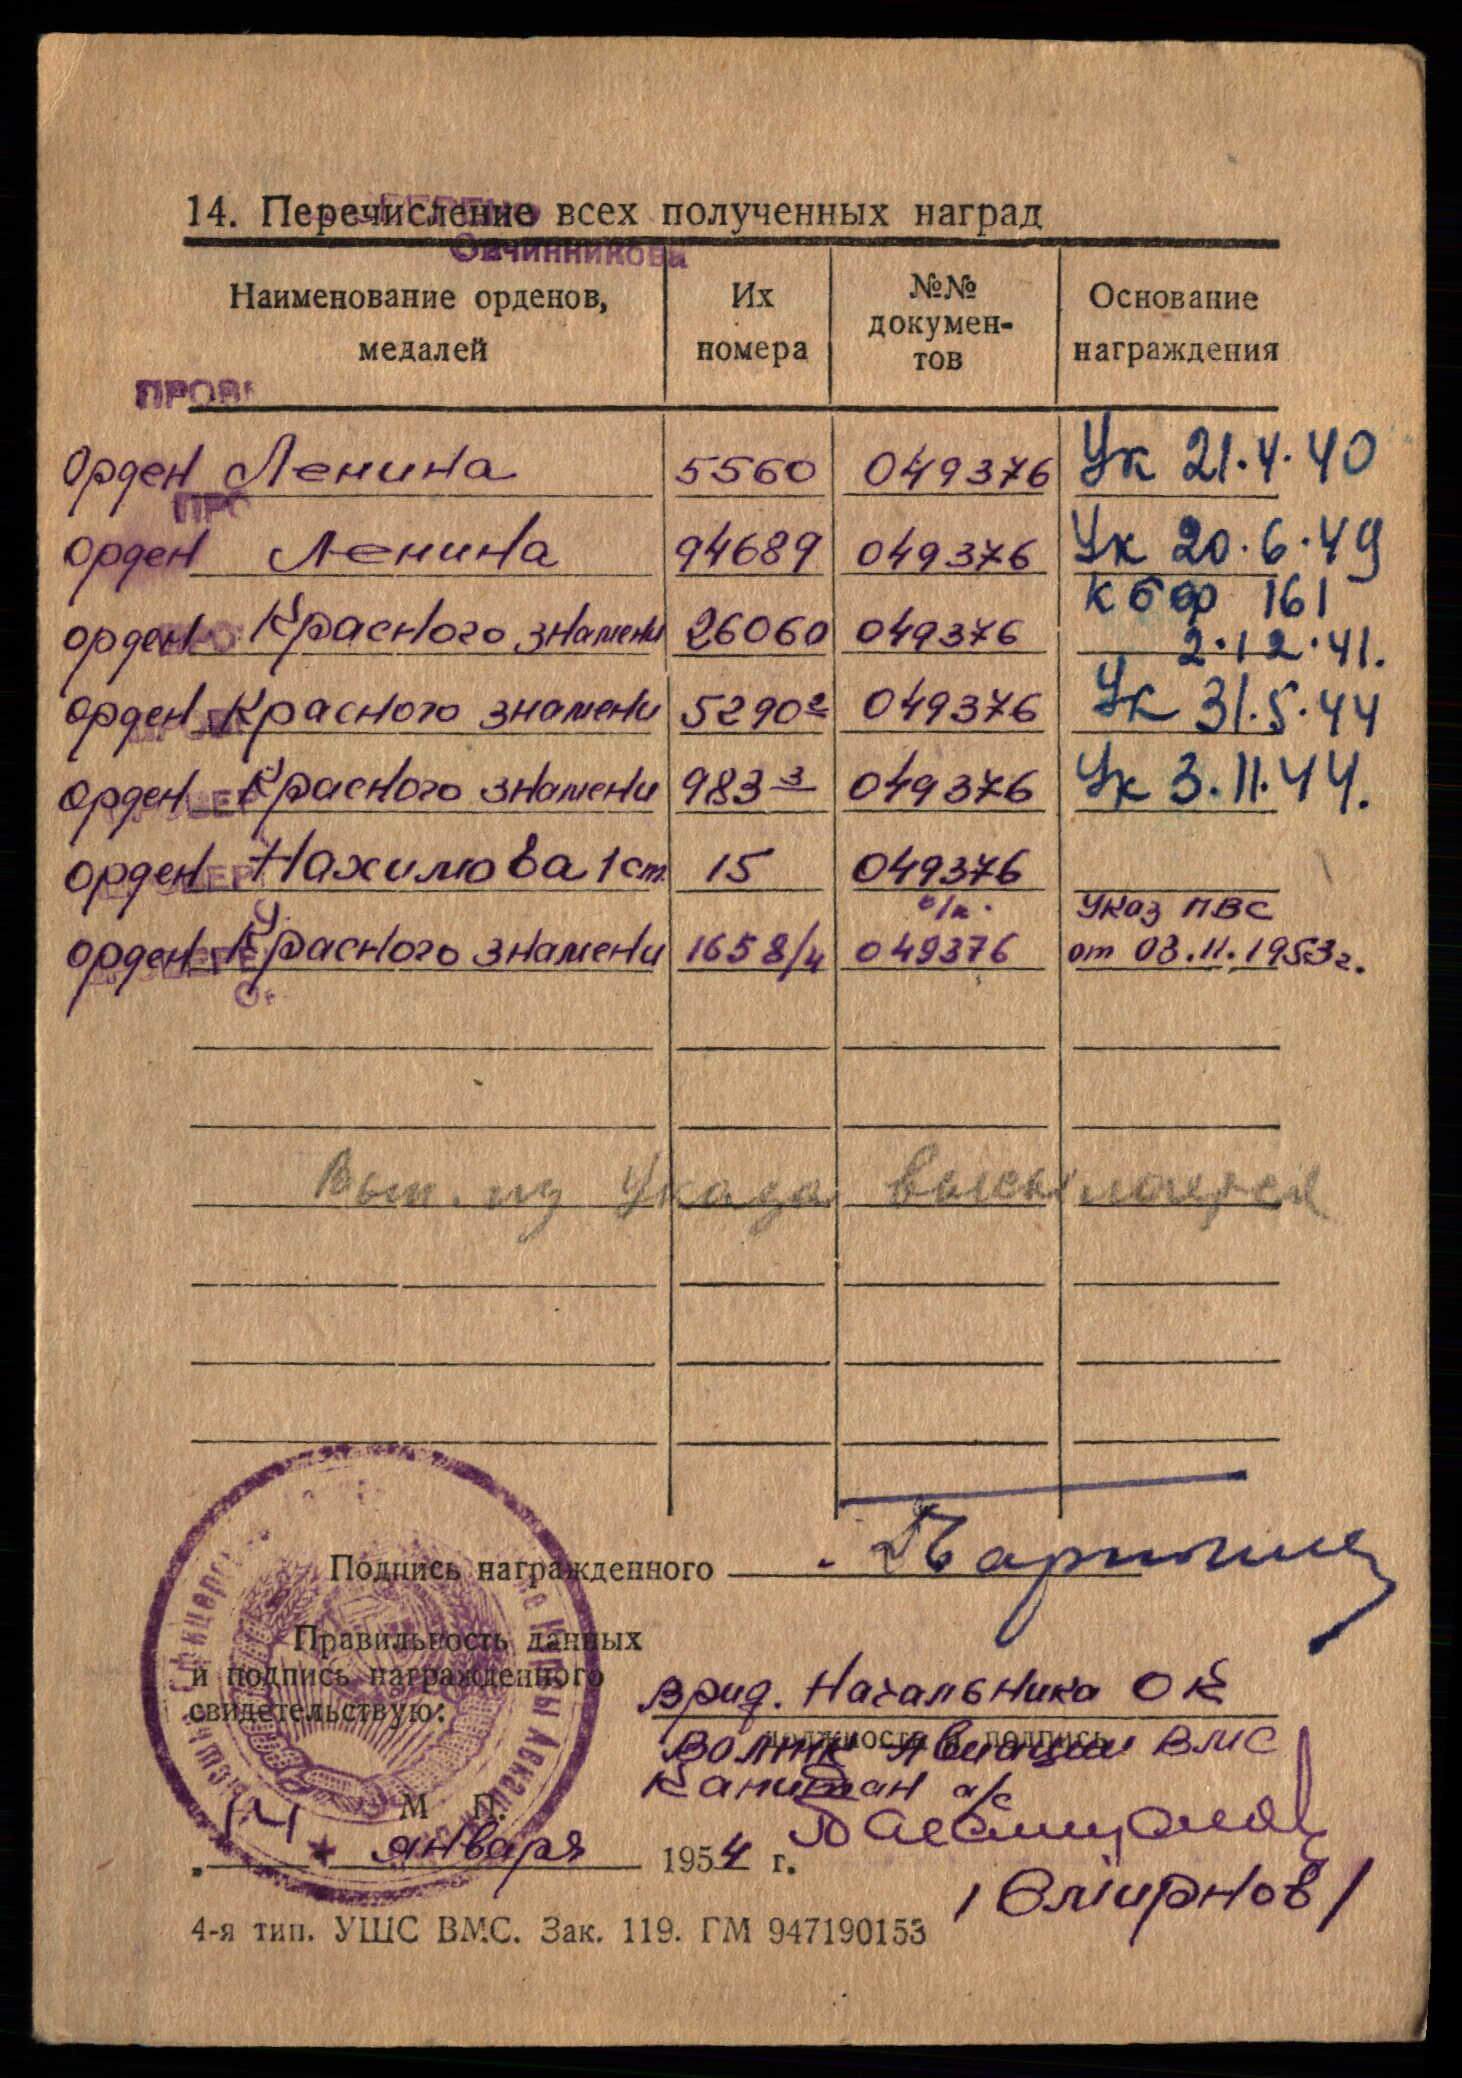 14. Перечисление всех полученных наград
Овчинникова
Наименование орденов, медалей
Их номера
№№ докумен-тов
Основание награждения
ПРОВ
Орден Ленина 5560 049376 Ук 21.4.40
ПРО
Орден Ленина 94689 049376 Ук 20.6.49
орден Красного знамени 26060 049376 КБФ 161 2.12.41.
орден Красного знамени 5290 2 049376 Ук 31.5.44
орден Красного знамени 983 3 049376 Ук 3.11.44.
орден Нахимова 1 ст. 15 049376
орден Красного знамени 1658/4 049376 Указ ПВС от 03.11.1953 г.
Вып. из Указа высылается
Подпись награжденного
Правильность данных
и подпись награжденного
свидетельствую:
Врид. Начальника ОК
должность и подпись
Авиации ВМС
Капитан а/с
М. П.
14 января 1954 г.
/Смирнов/
4-я тип. УШС ВМС. Зак. 119. ГМ 947190153